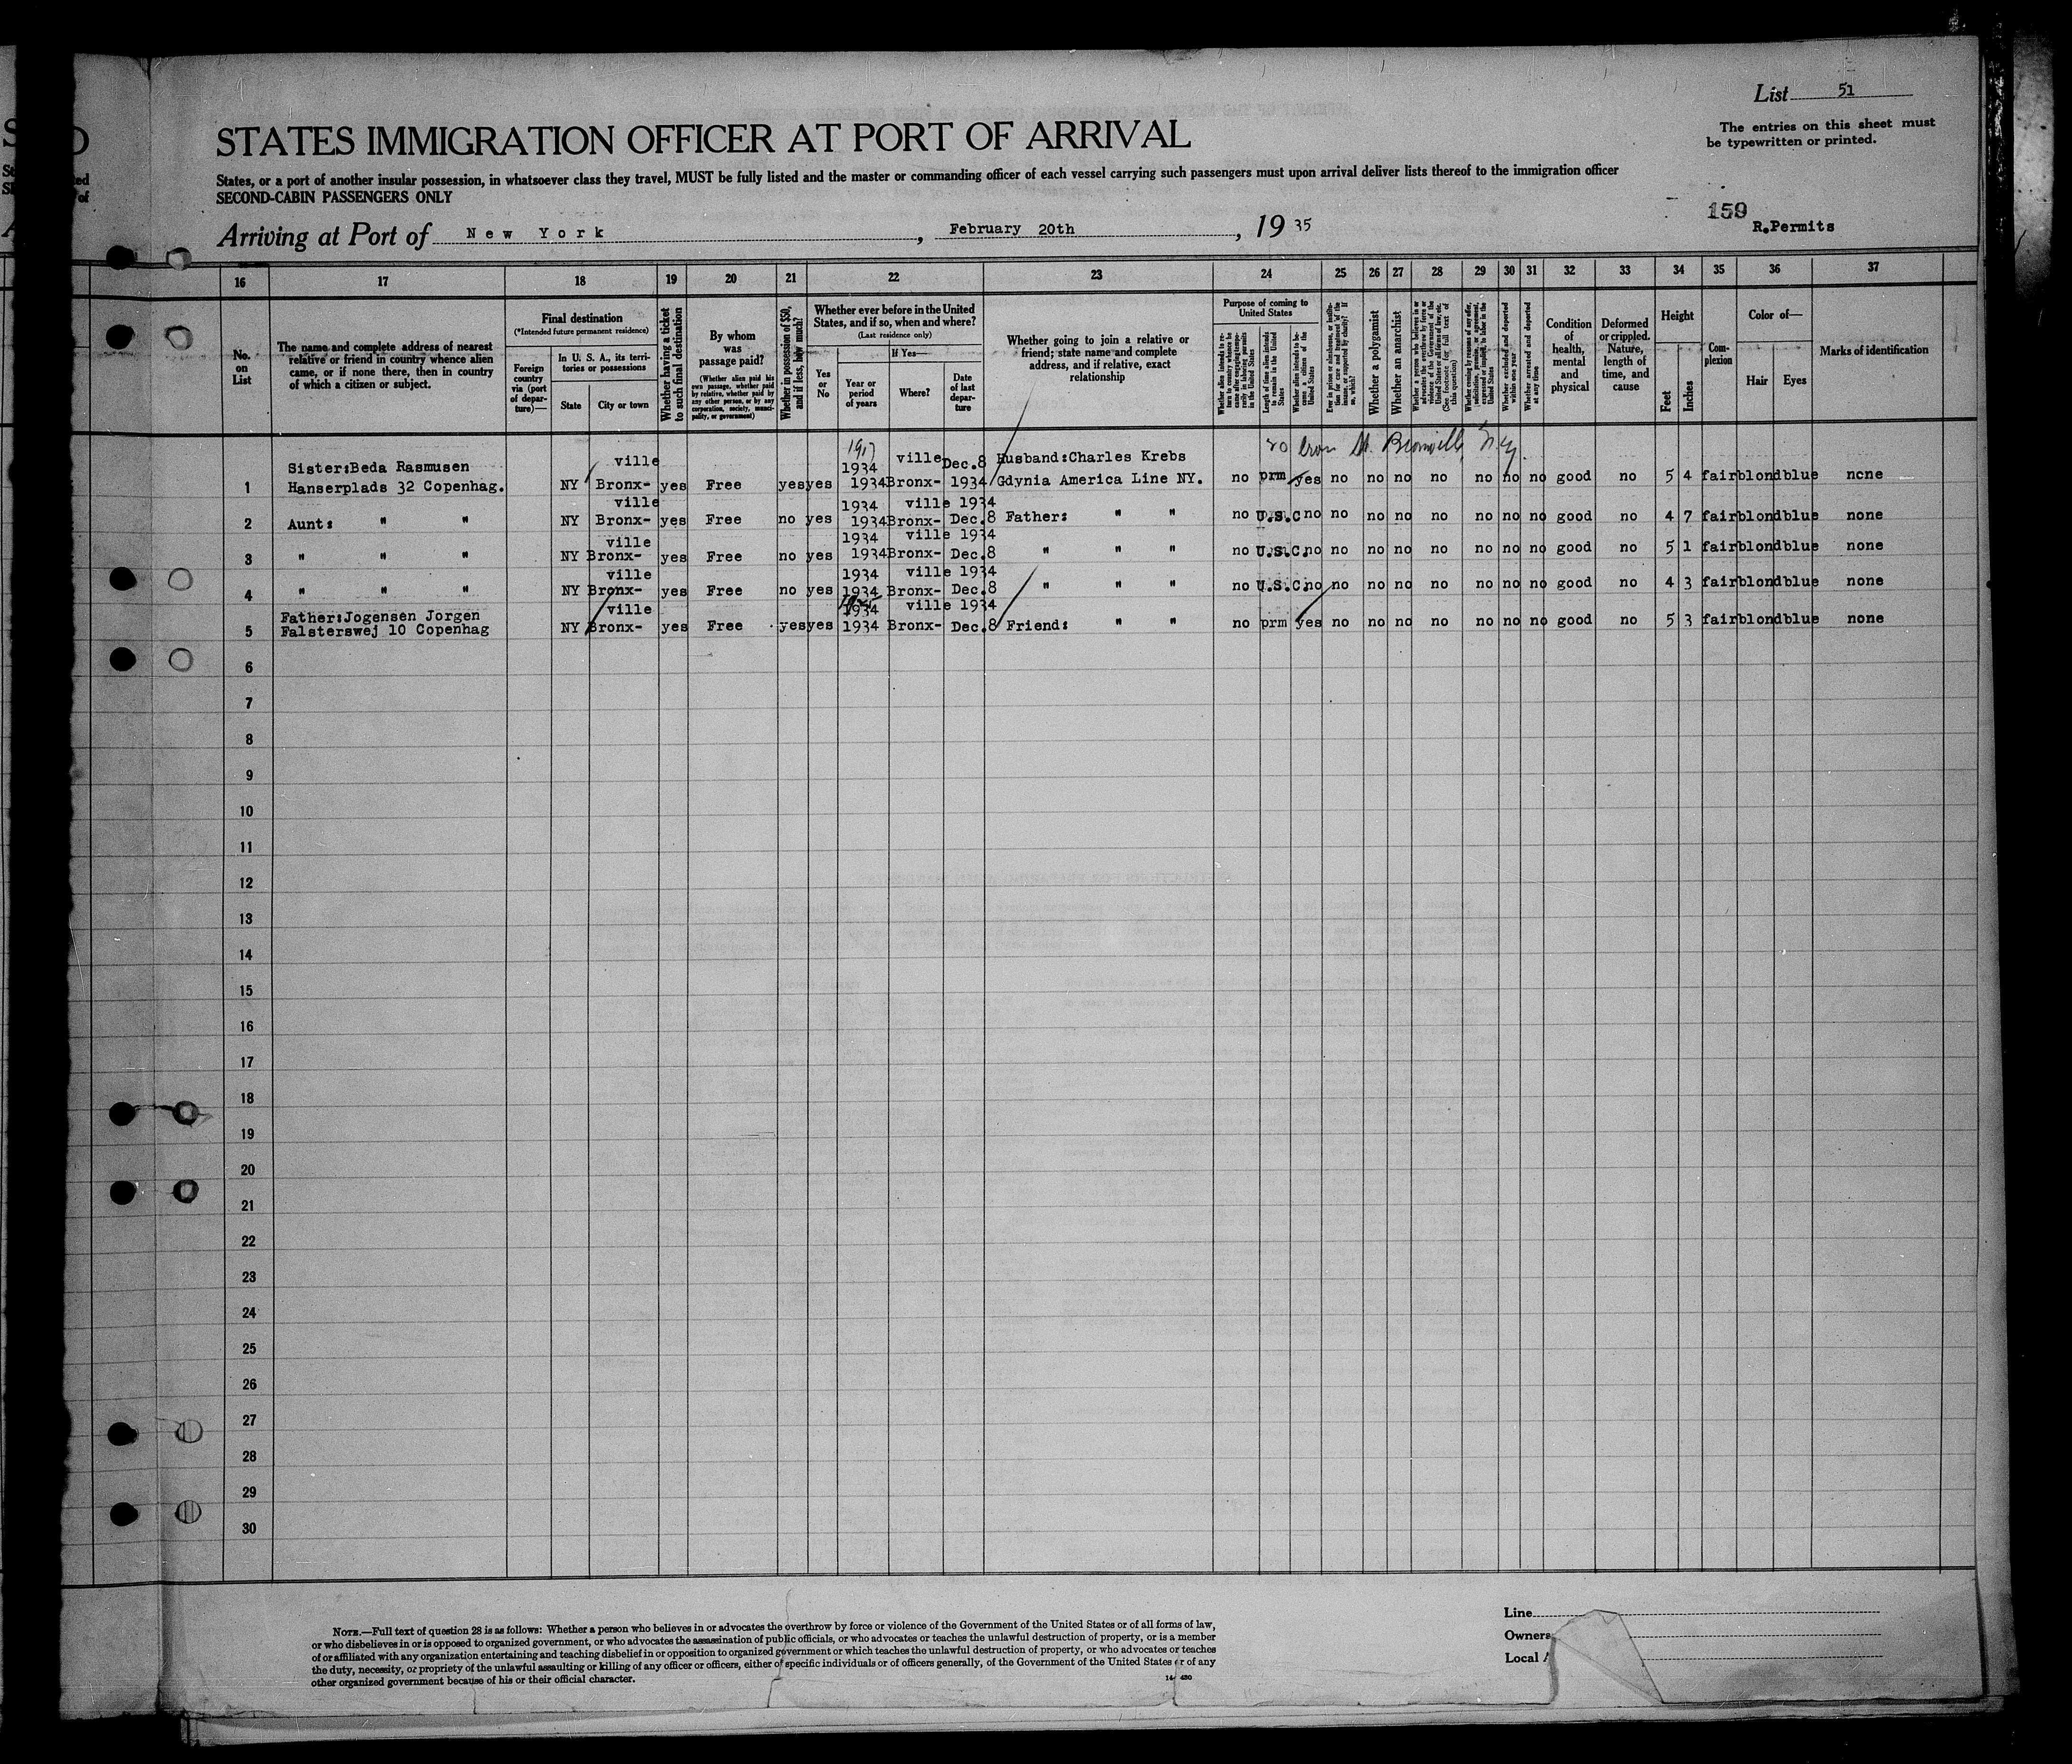 List 51
The entries on this sheet must
be typewritten or printed.
STATES IMMIGRATION OFFICER AT PORT OF ARRIVAL
States, or a port of another insular possession, in whatsoever class they travel, MUST be fully listed and the master or commanding officer of each vessel carrying such passengers must upon arrival deliver lists thereof to the immigration officer
SECOND-CABIN PASSENGERS ONLY
159
R.Permits
Arriving at Port of New York, February 20th, 1935
16 17 18 19 20 21 22 23 24 25 26 27 28 29 30 31 32 33 34 35 36 37
No. on List
The name and complete address of nearest relative or friend in country whence alien came, or if none there, then in country of which a citizen or subject.
Final destination
(*Intended future permanent residence)
Foreign country via (port of departure)—
In U. S. A., its territories or possessions
State
City or town
Whether having a ticket to such final destination
By whom was passage paid?
(Whether alien paid his own passage, whether paid by relative, whether paid by any other person, or by any corporation, society, municipality, or government)
Whether in possession of $50, and if less, how much?
Whether ever before in the United States, and if so, when and where?
(Last residence only)
Yes or No
If Yes—
Year or period of years
Where?
Date of last departure
Whether going to join a relative or friend; state name and complete address, and if relative, exact relationship
Purpose of coming to United States
Length of time alien intends to remain in the United States
Whether alien intends to become a citizen of the United States
Whether a polygamist
Whether an anarchist
Whether excluded and deported within one year
Whether arrested and deported at any time
Condition of health, mental and physical
Deformed or crippled. Nature, length of time, and cause
Height
Feet
Inches
Complexion
Color of—
Hair
Eyes
Marks of identification
1917
20 St. Bronxville, N.Y.
Sister:Beda Rasmusen ville 1934 ville Dec.8 Husband:Charles Krebs
1 Hanserplads 32 Copenhag. NY Bronx- yes Free yes yes 1934 Bronx- 1934 Gdynia America Line NY. no prm yes no no no no no no no good no 5 4 fair blond blue none
ville 1934 ville 1934
2 Aunt: " " NY Bronx- yes Free no yes 1934 Bronx- Dec.8 Father: " " no U.S.C no no no no no no no no good no 4 7 fair blond blue none
ville 1934 ville 1934
3 " " " NY Bronx- yes Free no yes 1934 Bronx- Dec.8 " " " no U.S.C. no no no no no no no no good no 5 1 fair blond blue none
ville 1934 ville 1934
4 " " " NY Bronx- yes Free no yes 1934 Bronx- Dec.8 " " " no U.S.C. no no no no no no no no good no 4 3 fair blond blue none
Father:Jogensen Jorgen ville 1934 ville 1934
5 Falsterswej 10 Copenhag NY Bronx- yes Free yes yes 1934 Bronx- Dec.8 Friend: " " no prm yes no no no no no no no good no 5 3 fair blond blue none
6
7
8
9
10
11
12
13
14
15
16
17
18
19
20
21
22
23
24
25
26
27
28
29
30
NOTE.—Full text of question 28 is as follows: Whether a person who believes in or advocates the overthrow by force or violence of the Government of the United States or of all forms of law,
or who disbelieves in or is opposed to organized government, or who advocates the assassination of public officials, or who advocates or teaches the unlawful destruction of property, or is a member
of or affiliated with any organization entertaining and teaching disbelief in or opposition to organized government or which teaches the unlawful destruction of property, or who advocates or teaches
the duty, necessity, or propriety of the unlawful assaulting or killing of any officer or officers, either of specific individuals or of officers generally, of the Government of the United States or of any
other organized government because of his or their official character.
Line
Owners
Local A